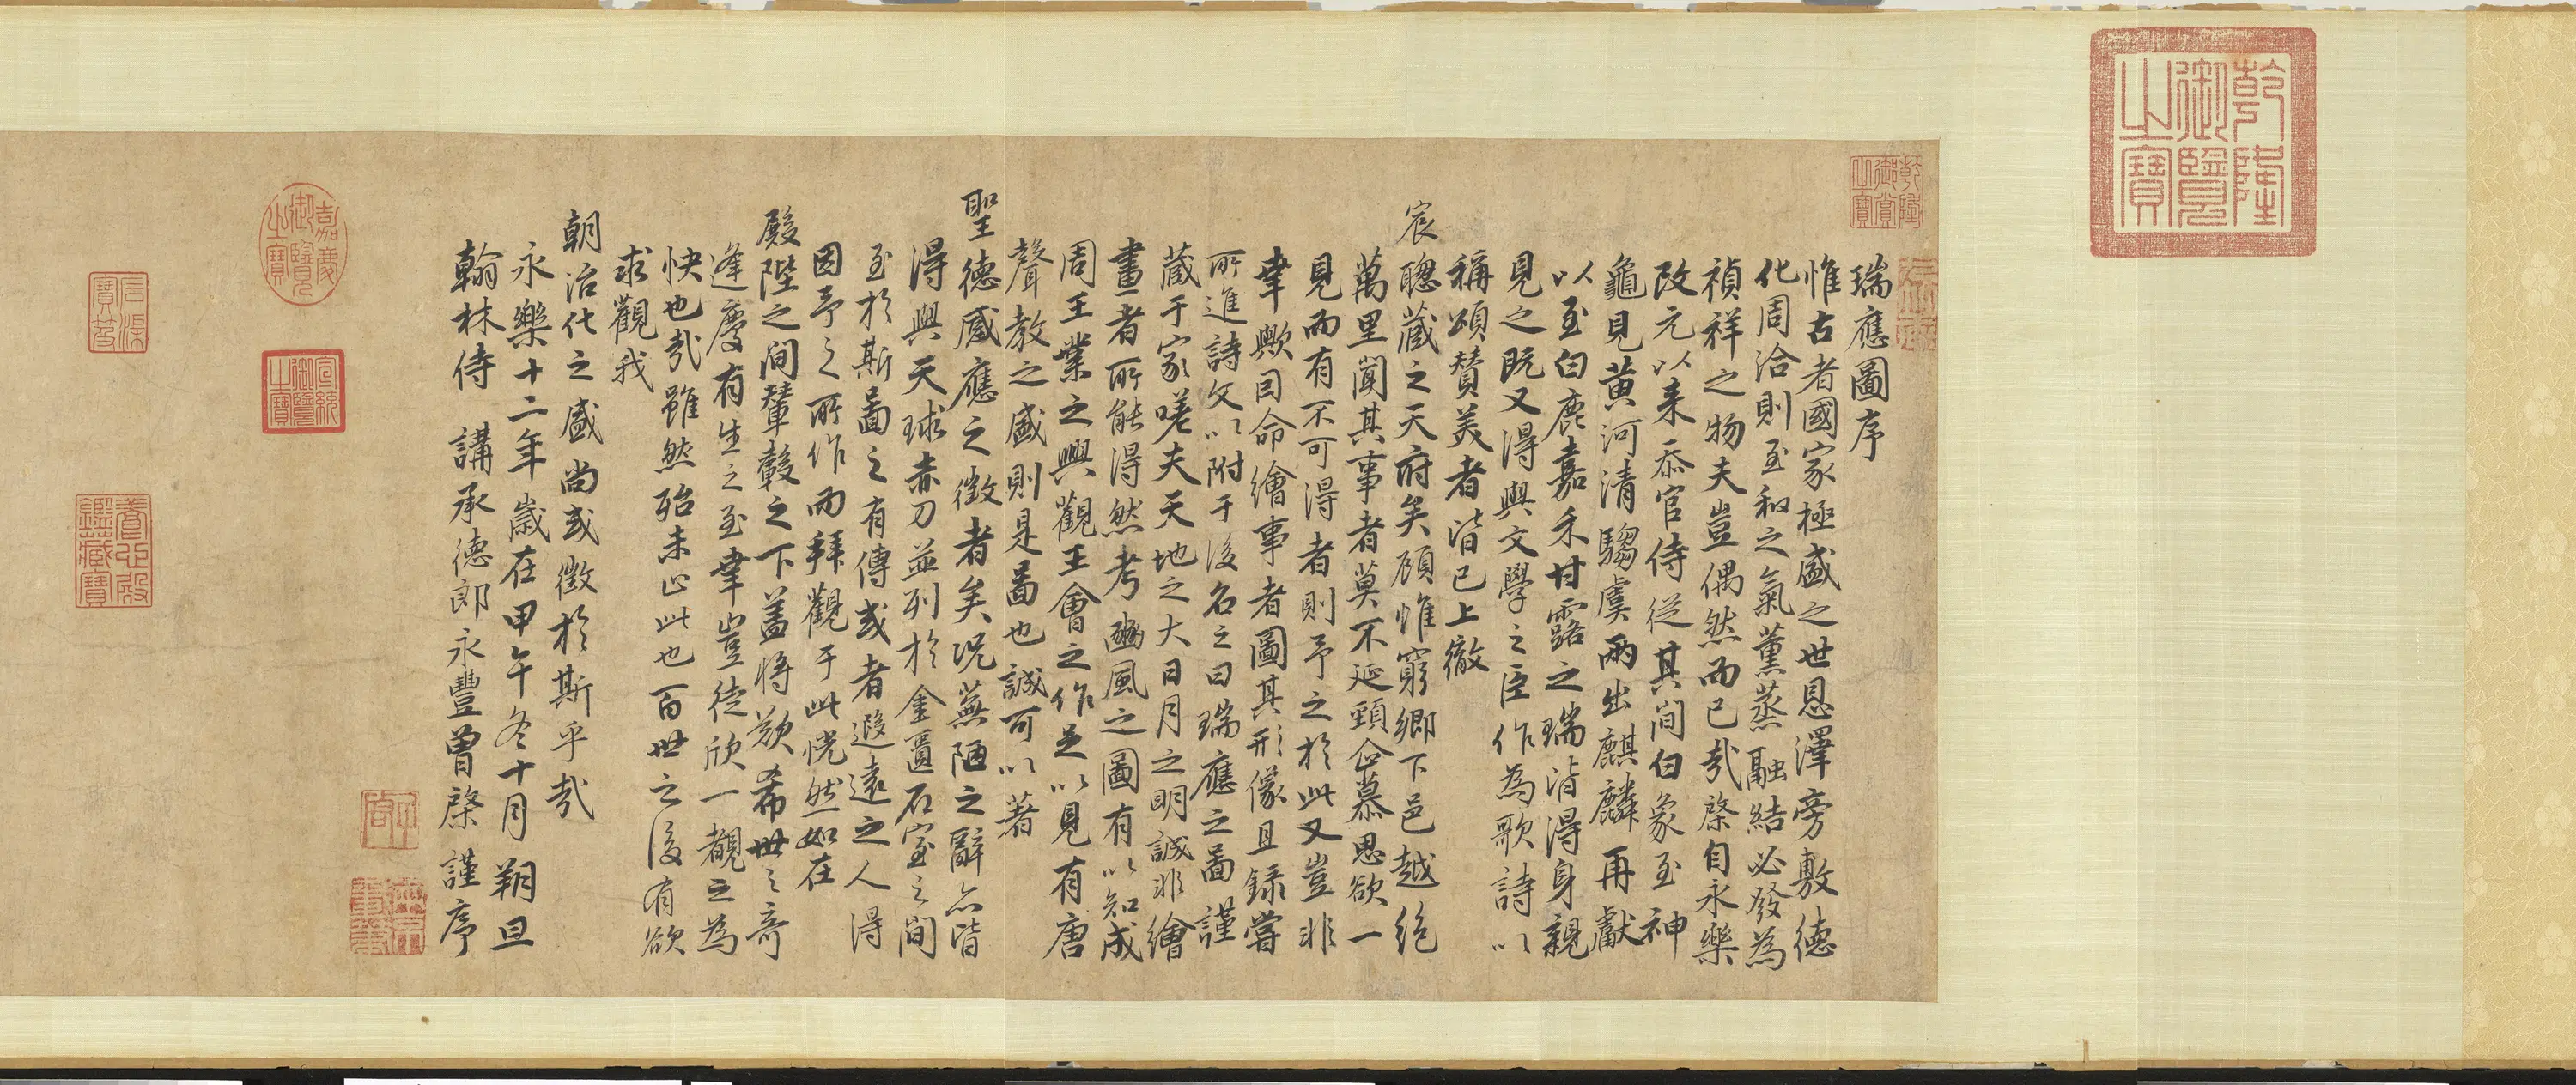 乾隆御覽之寶
乾隆御賞之寶
瑞應圖序
惟古者國家極盛之世恩澤旁敷德
化周洽則至和之氣薰蒸融結必發為
禎祥之物夫豈偶然而已哉棨自永樂
改元以来忝官侍從其間白象至神
龜見黃河清騶虞兩出麒麟再獻
以至白鹿嘉禾甘露之瑞皆得身親
見之既又得與文學之臣作為歌詩以
稱頌賛美者皆已上徹
宸聰蔵之天府矣顧惟窮鄉下邑越絕
萬里聞其事者莫不延頸企慕思欲一
見而有不可得者則予之於此又豈非
幸歟因命繪事者圖其形像且錄嘗
所進詩文以附于後名之曰瑞應之圖謹
蔵于家嗟夫天地之大日月之明誠非繪
畫者所能得然考豳風之圖有以知成
周王業之興觀王會之作足以見有唐
聲教之盛則是圖也誠可以著
聖德感應之徵者矣況蕪陋之辭亦皆
得與天球赤刀並列於金匱石室之間
至於斯圖之有傳或者遐遠之人得
因予之所作而拜觀于此恍然如在
殿陛之間輦轂之下盖將歎希世之奇
逢慶有生之至幸豈徒欣一覩之為
快也哉雖然殆未止此也百世之後有欲
求觀我
朝治化之盛尚或徵於斯乎哉
永樂十二年歲在甲午冬十月朔旦
翰林侍講承德郎永豐曾棨謹序
嘉慶御覽之寶
宣統御覽之寶
石渠寶笈
養心殿鑑藏寶